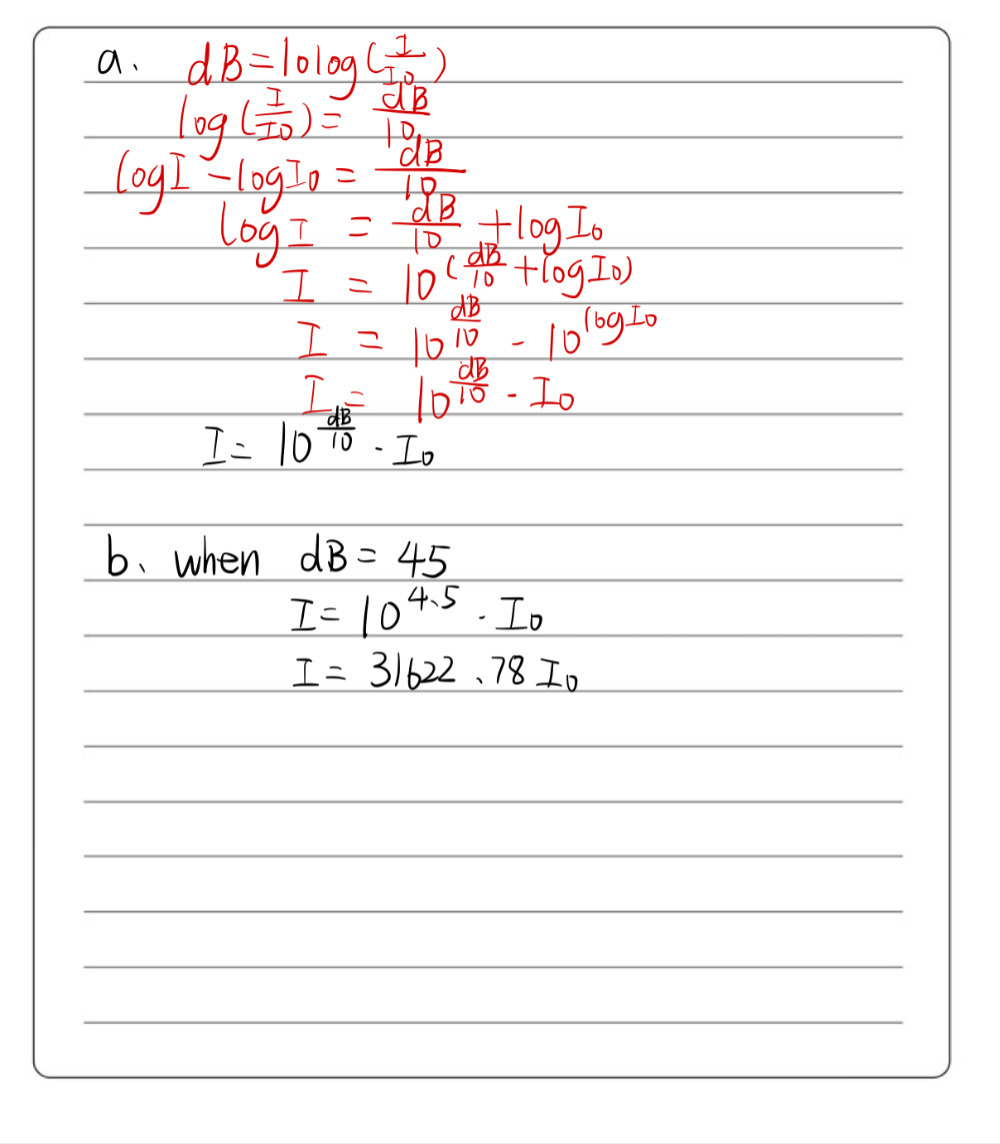 a. dB=10log(I/I0)
log(I/I0)= dB/10
logI -logI0 = dB/10
logI = dB/10 +logI0
I = 10^(dB/10 +logI0)
I = 10^(dB/10) - 10^(logI0)
I = 10^(dB/10) - I0
I= 10^(dB/10) - I0
b、when dB= 45
I= 10^4、5 . I0
I= 31622 、78 I0